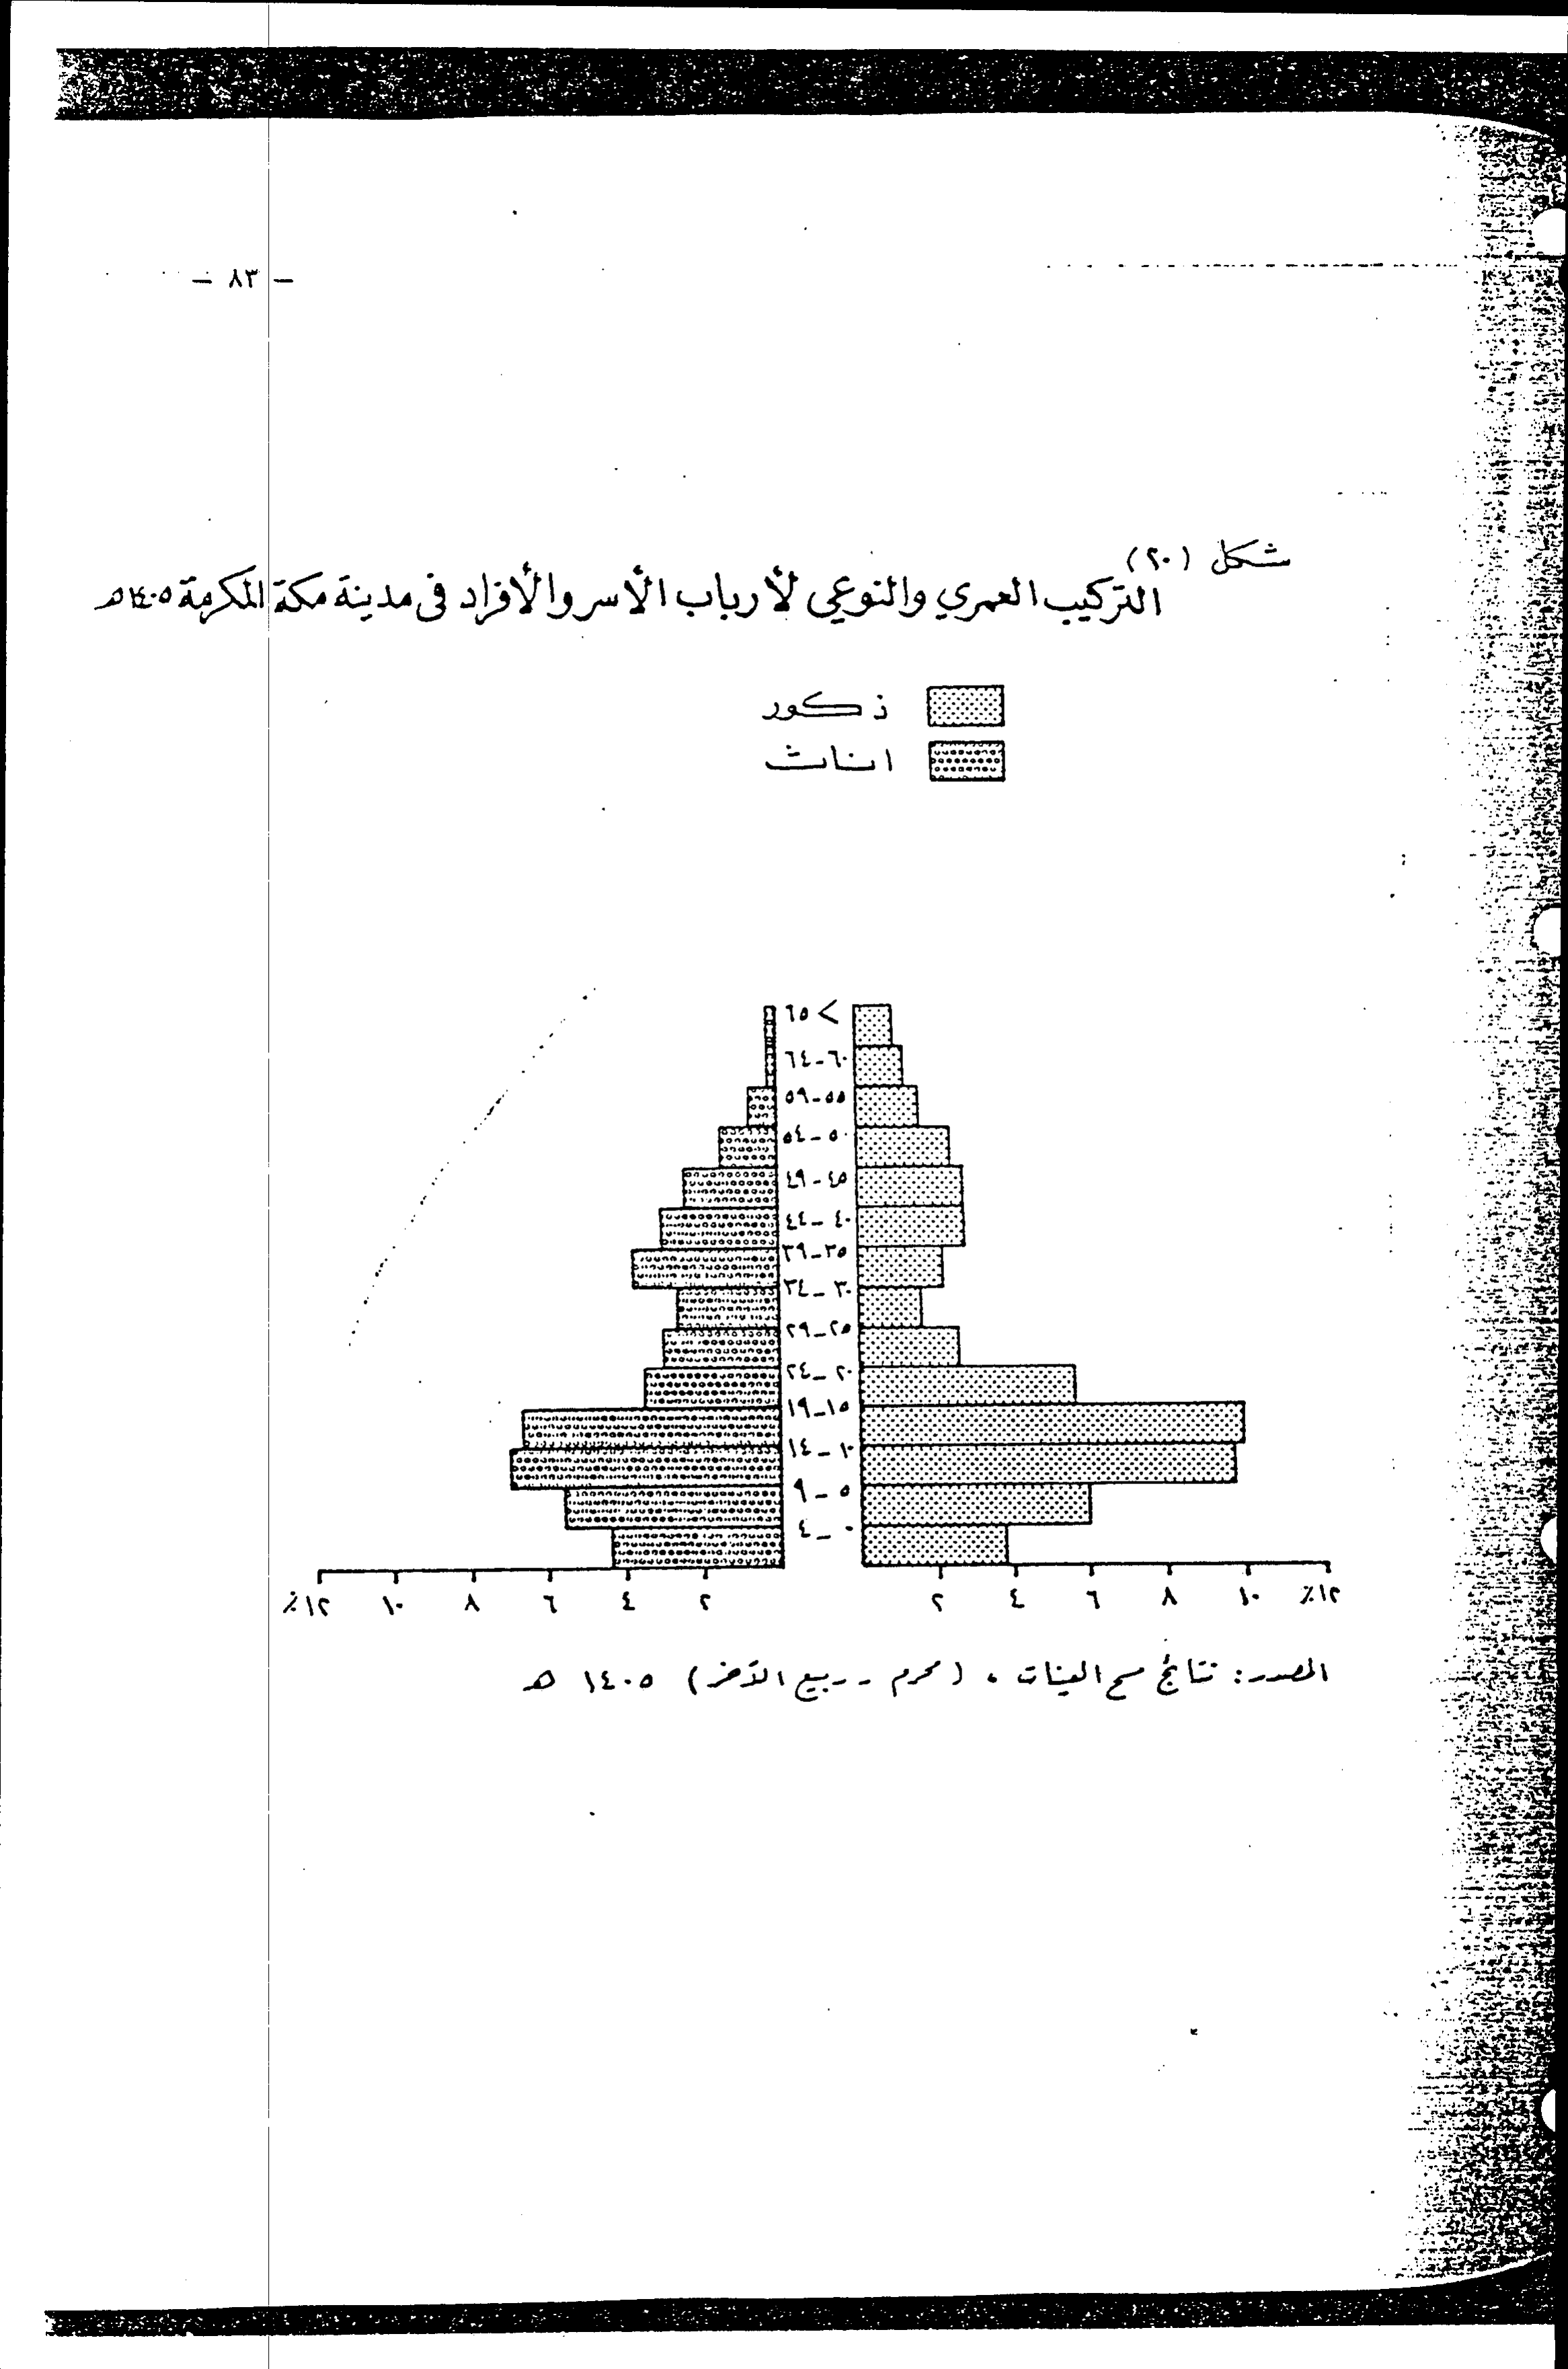 - ٨٣ -
شكل (٢٠)
التركيب العمري والنوعي لأرباب الأسر والأفراد فى مدينة مكة المكرمة ١٤٠٥هـ
ذكور
اناث
> ٦٥
٦٠-٦٤
٥٥-٥٩
٥٠-٥٤
٤٥-٤٩
٤٠-٤٤
٣٥-٣٩
٣٠-٣٤
٢٥-٢٩
٢٠-٢٤
١٥-١٩
١٠-١٤
٥-٩
٠-٤
٪١٢ ١٠ ٨ ٦ ٤ ٢ ٢ ٤ ٦ ٨ ١٠ ٪١٢
المصدر: نتائج مسح العينات . (محرم - ربيع الآخر) ١٤٠٥ هـ